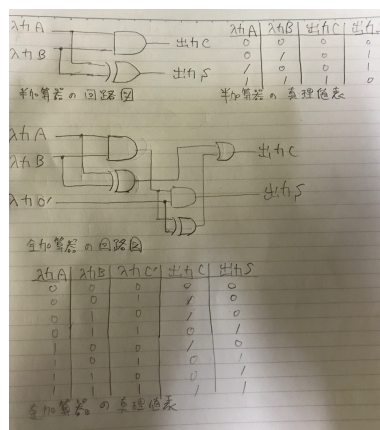 入力A 出力C
入力B 出力S
半加算器の回路図
入力A 入力B 出力C 出力S
0 0 0 0
0 1 0 1
1 0 0 1
1 1 1 0
半加算器の真理値表
入力A 出力C
入力B
入力C' 出力S
全加算器の回路図
入力A 入力B 入力C' 出力C 出力S
0 0 0 0 0
0 0 1 1 0
0 1 0 1 0
0 1 1 0 1
1 0 0 1 0
1 0 1 0 1
1 1 0 0 1
1 1 1 1 1
全加算器の真理値表